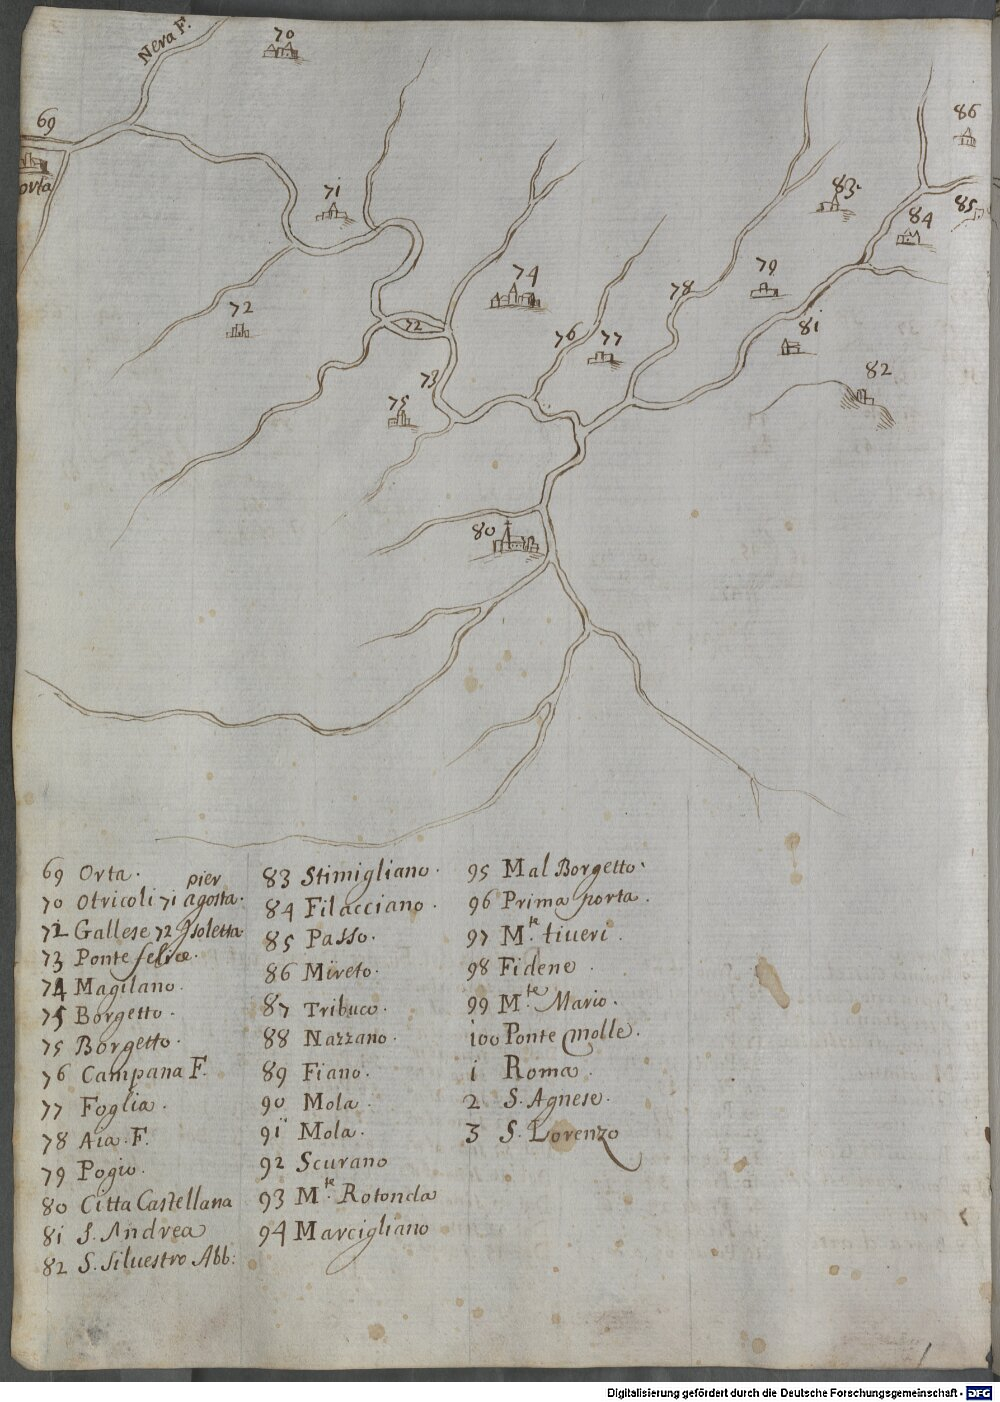 Nera F.
70
69
orta
71
72
72
73
74
75
76
77
78
79
80
81
82
83.
84
85
86
69 Orta.
pier
70 Otricoli 71 agosta.
72 Gallese 72 Isoletta
73 Ponte felice.
74 Magilano.
75 Borgetto.
75 Borgetto.
76 Campana F.
77 Foglia.
78 Aia. F.
79 Pogio.
80 Citta Castellana
81 S. Andrea
82 S. Siluestro Abb:
83 Stimigliano.
84 Filacciano.
85 Passo.
86 Mireto.
87 Tribuco.
88 Nazzano.
89 Fiano.
90 Mola.
91 Mola.
92 Scurano
93 M.te Rotonda
94 Marcigliano
95 Mal Borgetto.
96 Prima porta.
97 M.te tiueri.
98 Fidene.
99 M.te Mario.
100 Ponte Molle.
1 Roma.
2 S. Agnese.
3 S. Lorenzo
Digitalisierung gefördert durch die Deutsche Forschungsgemeinschaft - DFG